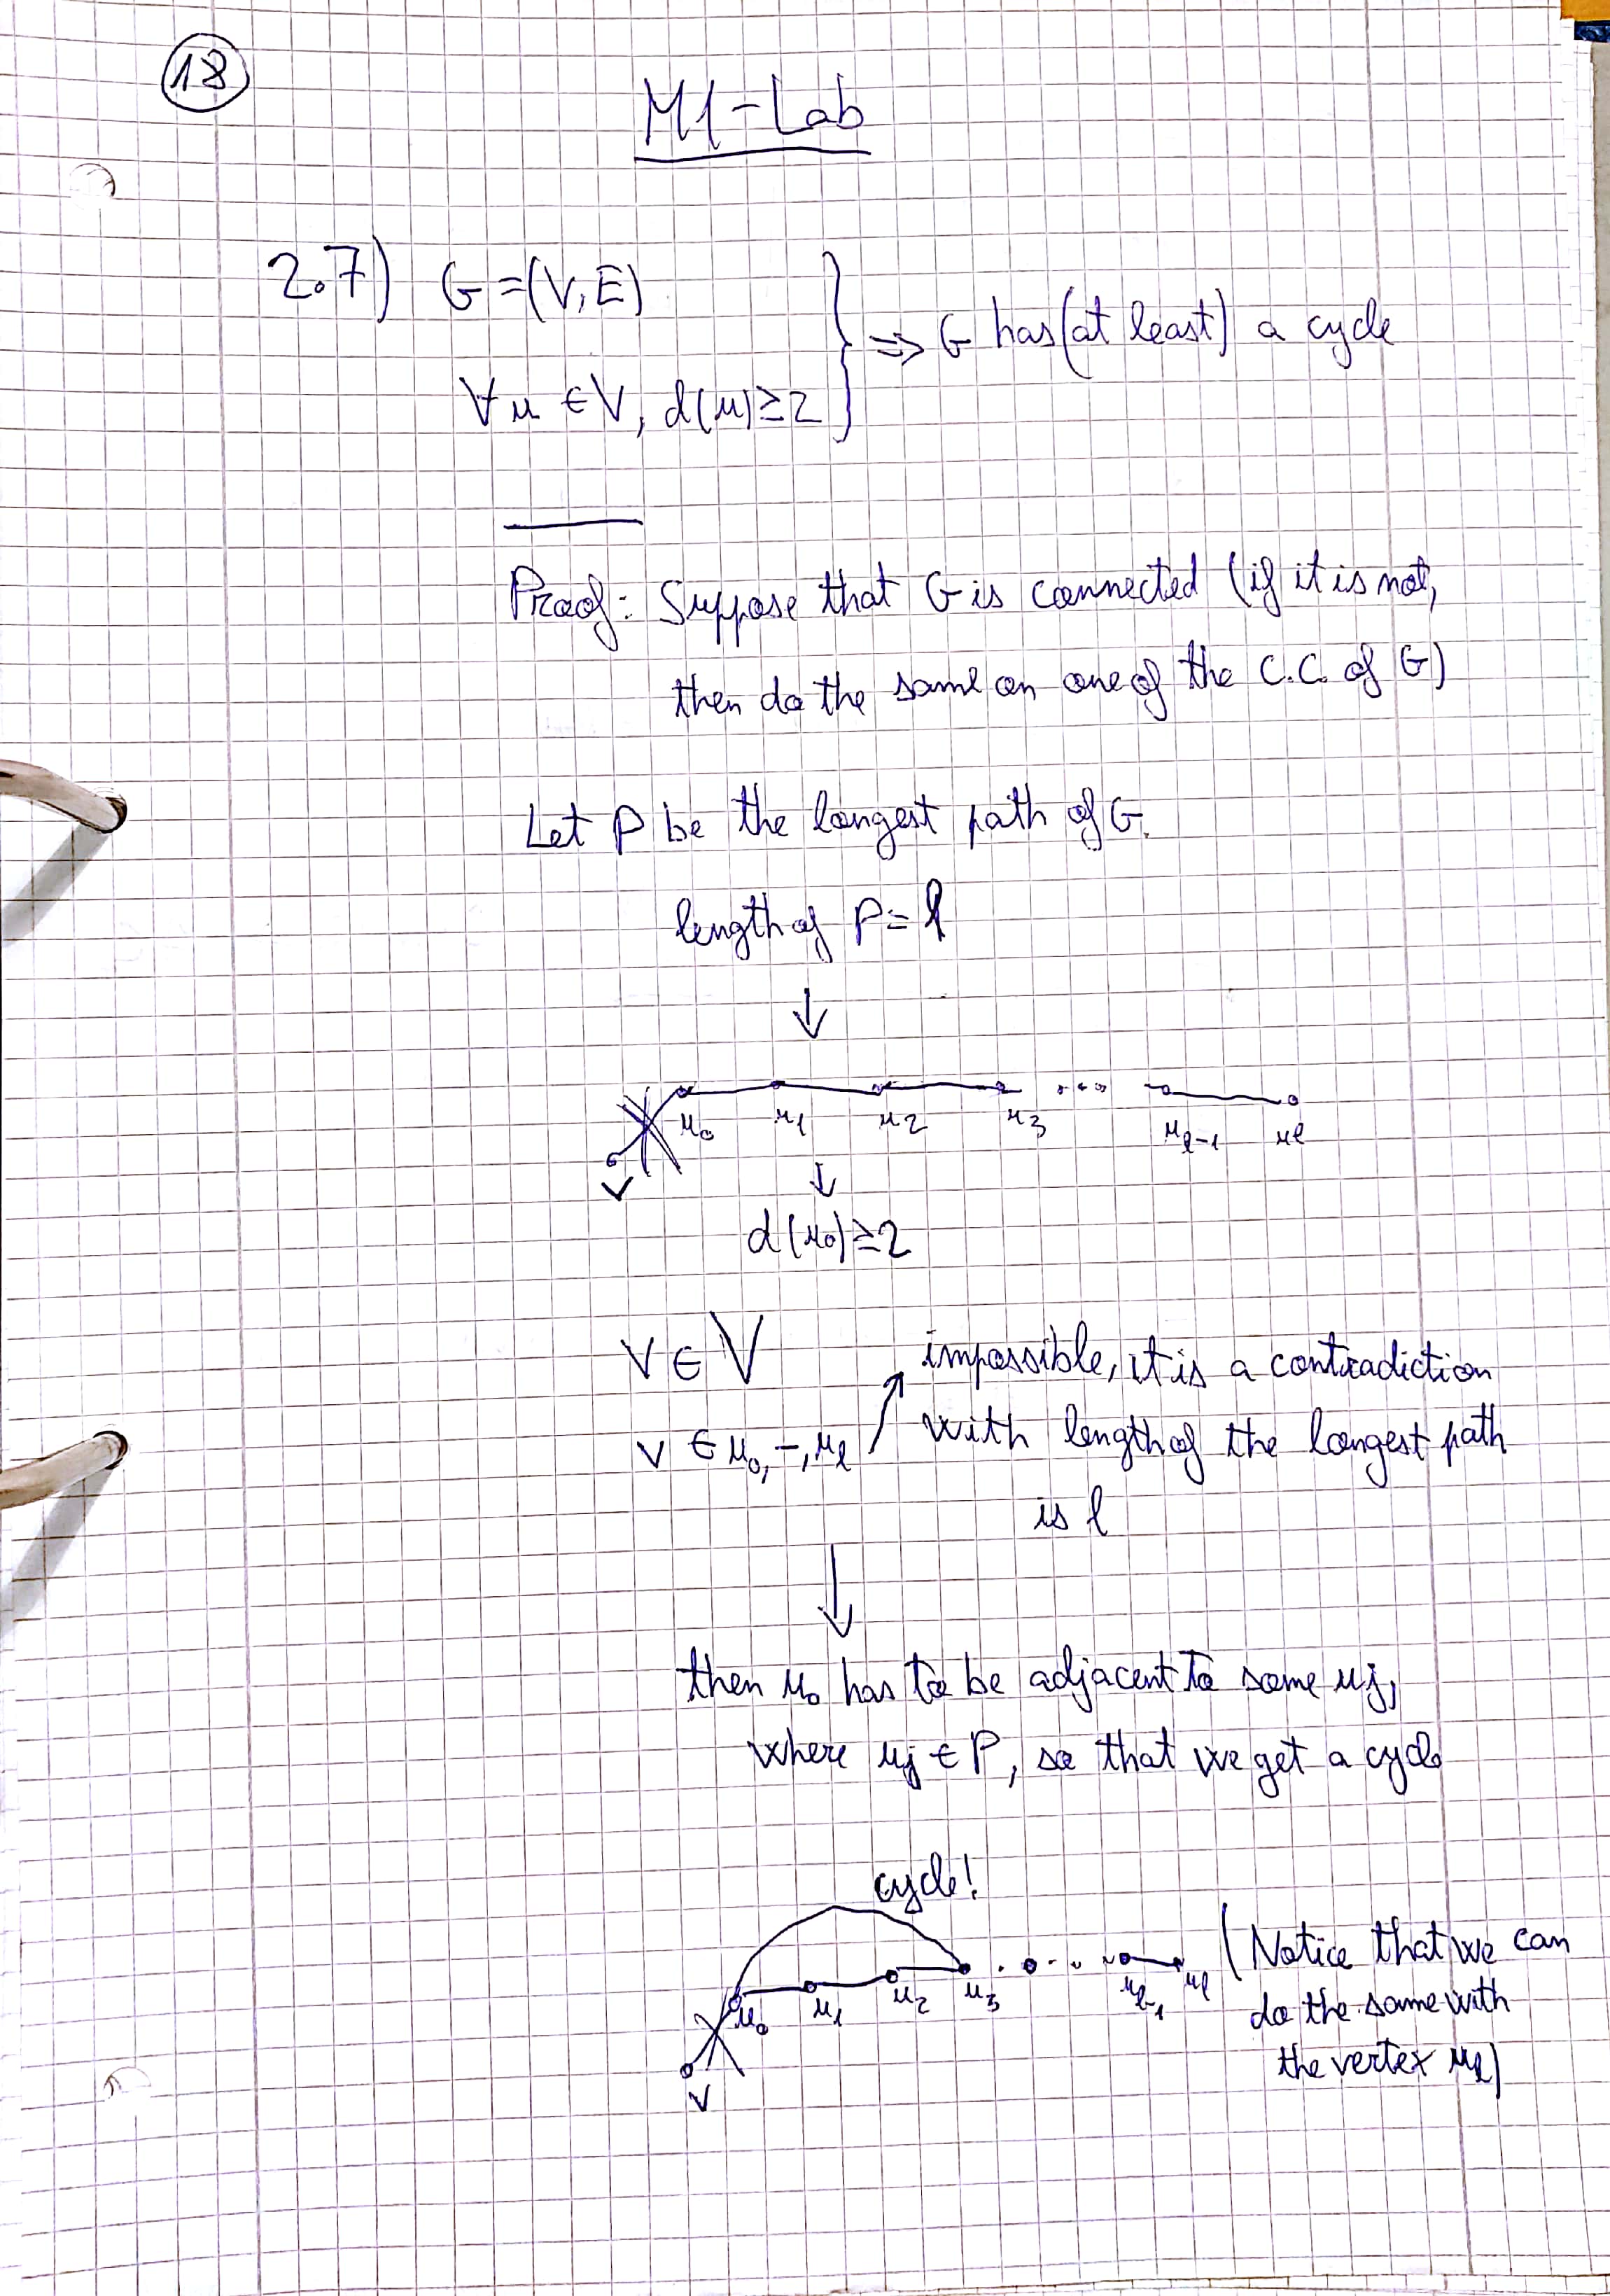 18
M1-Lab
2.7) G=(V,E)
∀u ∈V, d(u)≥2
} => G has (at least) a cycle
Proof: Suppose that G is connected (if it is not,
then do the same on one of the C.C. of G)
Let P be the longest path of G.
length of P = l
↓
u0 u1 u2 u3 ... ul-1 ul
v ↓
d(u0)≥2
v ∈ V
v ∈ u0, -, ul ↗ impossible, it is a contradiction
with length of the longest path
is l
↓
then u0 has to be adjacent to some uj,
where uj ∈ P, so that we get a cycle
cycle!
u0 u1 u2 u3 ... ul-1 ul
v
(Notice that we can
do the same with
the vertex ul)